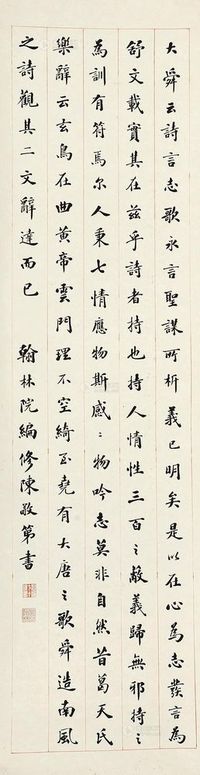 大舜云詩言志歌永言聖謀所析義已明矣是以在心為志發言為
舒文載實其在茲乎詩者持也持人情性三百之蔽義歸無邪持之
為訓有符焉尔人秉七情應物斯感〻物吟志莫非自然昔葛天氏
樂辭云玄鳥在曲黃帝雲門理不空綺至堯有大唐之歌舜造南風
之詩觀其二文辭達而已 翰林院編修陳敬第書